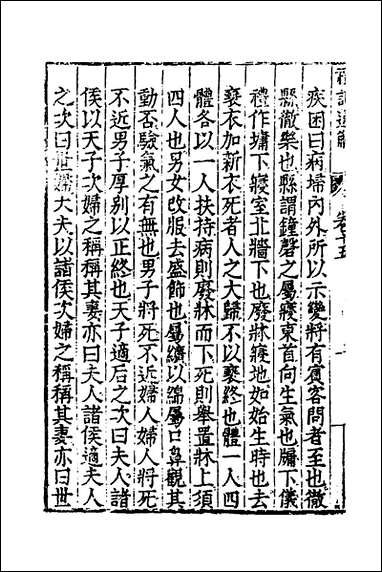 禮記通解 卷十五 一
疾困曰病埽內外所以示變將有賓客問者至也徹
縣徹樂也縣謂鐘磬之屬寢東首向生氣也牖下儀
禮作墉下寢室北牆下也廢牀寢地如始生時也去
褻衣加新衣死者人之大歸不以褻終也體一人四
體各以一人扶持病則廢牀而下死則舉置牀上須
四人也男女改服去盛飾也屬纊以綿屬口鼻觀其
動否驗氣之有無也男子將死不近婦人婦人將死
不近男子厚别以正終也天子適后之次曰夫人諸
侯以天子次婦之稱稱其妻亦曰夫人諸侯適夫人
之次曰世婦大夫以諸侯次婦之稱稱其妻亦曰世